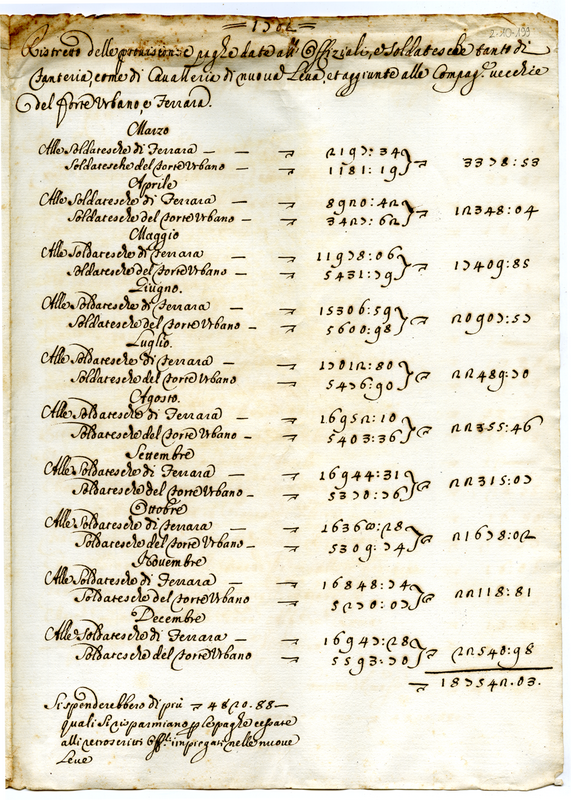 Ristretto delle provisioni, e paghe date all' Offiziali, e Soldatesche tanto di
Fanteria, come di Cavalleria di nuova Leva, et aggiunte alle Compag.e vecchie
del Forte Urbano e Ferrara.
Marzo
Alle Soldatesche di Ferrara — — 2197:34
Soldatesche del Forte Urbano — 1181:19 } 3378:53
Aprile
Alle Soldatesche di Ferrara — 8920:42
Soldatesche del Forte Urbano — 3427:62 } 12348:04
Maggio
Alle Soldatesche di Ferrara 11978:06
Soldatesche del Forte Urbano 5431:79 } 17409:85
Giugno.
Alle Soldatesche di Ferrara — 15306:59
Soldatesche del Forte Urbano — 5600:98 } 20907:57
Luglio.
Alle Soldatesche di Ferrara — 17012:80
Soldatesche del Forte Urbano 5476:90 } 22489:70
Agosto.
Alle Soldatesche di Ferrara — 16952:10
Soldatesche del Forte Urbano — 5403:36 } 22355:46
Settembre
Alle Soldatesche di Ferrara — 16944:31
Soldatesche del Forte Urbano — 5370:76 } 22315:07
Ottobre
Alle Soldatesche di Ferrara — 16368:28
Soldatesche del Forte Urbano — 5309:74 } 21678:02
Novembre
Alle Soldatesche di Ferrara — 16848:74
Soldatesche del Forte Urbano 5270:07 } 22118:81
Decembre
Alle Soldatesche di Ferrara — 16947:28
Soldatesche del Forte Urbano 5593:70 } 22540:98
187542.03.
Si spenderebbero di più 4820.88 —
quali si risparmiano p le paghe cessate
alli retroscritti Off.li impiegati nelle nuove
Leve